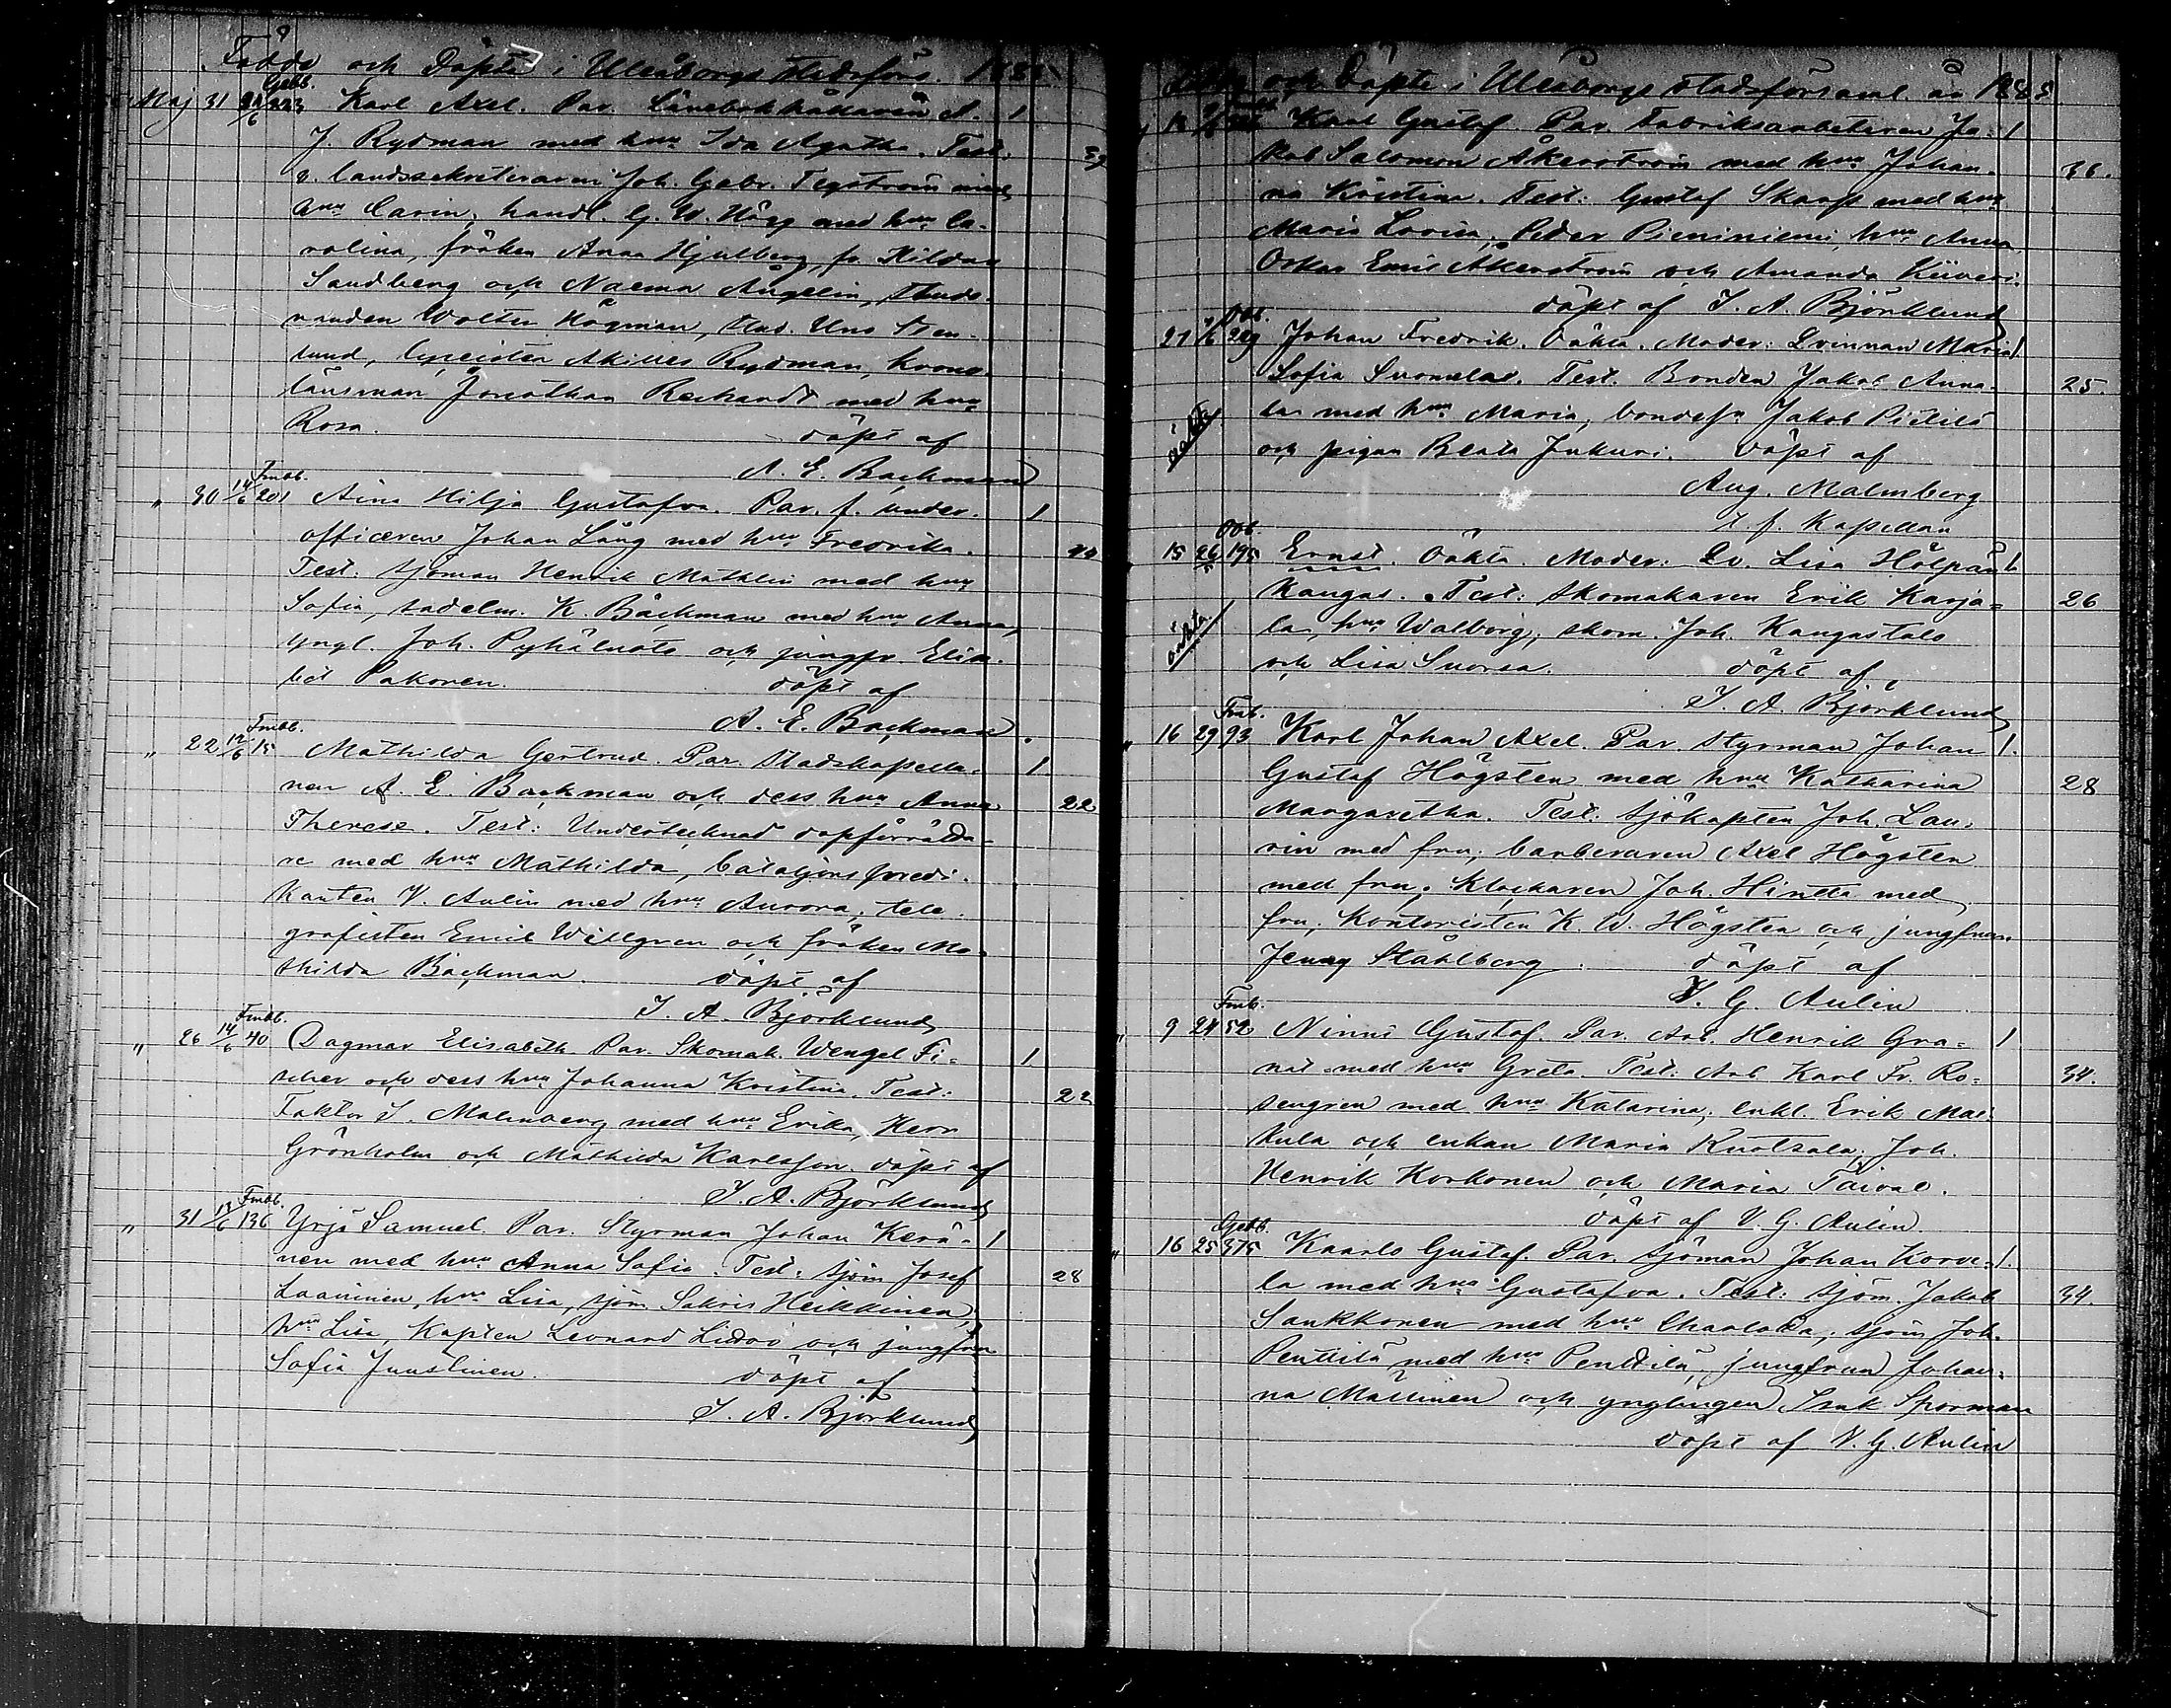 Födde och Döpte i Uleåborgs stadsförs. 1885.
Gebb.
Maj 31 21/6 223 Karl Axel. Par. Länebokhållaren A. 1
J. Rydman med hu Ida Agatha. Test.
v. landssekreteraren Joh. Gabr. Tegström med
hu Carin, handl. G. W. Högg med hu Ca-
rolina, fröken Anna Hjulberg, fr. Hildur
Sandberg och Naema Ångelin, stude-
randen Wolter Högman, stud. Uno Sten-
lund, lyceisten Akilles Rydman, krono-
länsman Jonathan Rechardt med hu
Rosa. döpt af
A. E. Backman
Fmbb.
" 30 14/6 201 Aina Hilja Gustafva. Par. f. under- 1
officeren Johan Lång med hu Fredrika.
Test: sjöman Henrik Mathlin med hu
Sofia, sadelm. K. Bäckman med hu Anna,
yngl. Joh. Pyhäluoto och jungfr. Elisa-
bet Pakonen. döpt af
A. E. Backman.
Fmbb.
" 22 12/6 15 Mathilda Gertrud. Par. Stadskapella- 1
nen A. E. Backman och dess hu Anna 22
Therese. Test: Undertecknad dopförrätta-
re med hu Mathilda, bataljonspredi-
kanten V. Aulin med hu Aurora, tele-
grafisten Emil Willgren och fröken Ma-
thilda Bäckman. döpt af
J. A. Björklund
Fmbb.
" 26 14/6 40 Dagmar Elisabeth Par. Skomak. Wengel Fi- 1
scher och dess hu Johanna Kristina. Test: 22
Faktor J. Malmberg med hu Erika, Herr
Grönholm och Mathilda Karlsson. döpt af
J. A. Björklund
Fmbb.
" 31 13/6 136 Yrjö Samuel. Par. Styrman Johan Kerä- 1
nen med hu Anna Sofia. Test: sjöm Josef 28
Laaninen, hu Lisa, sjöm Sakris Heikkinen,
hu Lisa, Kapten Leonard Lidov och jungfru
Sofia Juustinen. döpt af
J. A. Björklund
och Döpte i Uleåborgs stadsförsaml. år 1885
Karl Gustaf. Par. Fabriksarbetaren Ja- 1
kob Salomon Åkerström med hu Johan- 36.
na Kristina. Test: Gustaf Skarp med hu
Maria Lovisa, Peter Pieniniemi, hu Anna,
Oskar Emil Åkerström och Amanda Kiiveri.
döpt af J. A. Björklund
Obb.
27 7/6 229 Johan Fredrik. Oäkta. Moder: Qvinnan Maria 1
Sofia Suomelas. Test. Bonden Jakob Anna- 25.
la med hu Maria, bondesn Jakob Pietilä
oäkta och pigan Beata Jukuri. döpt af
Aug. Malmberg
t. f. Kapellan
Obb.
15 26 195 Ernst. Oäkta. Moder: Qv. Lisa Hölpän 1
kangas. Test: Skomakaren Erik Karja- 26
oäkta la, hu Walborg, skom. Joh. Kangastalo
och Lisa Suorsa. döpt af
J. A. Björklund
Fmb.
" 16 29 93 Karl Johan Axel. Par. Styrman Johan 1.
Gustaf Högsten med hu Katharina 28
Margaretha. Test. Sjökapten Joh. Lau-
rin med fru; barberaren Axel Högsten
med fru; Klockaren Joh. Hinta med
fru; Kontoristen K. W. Högsten och jungfrun
Jenny Ståhlberg. döpt af
V. G. Aulin
Fmb.
" 9 24 52 Ninni Gustaf. Par. Arb. Henrik Gra- 1
nat med hu Greta. Test: Arb Karl Fr. Ro- 34.
sengren med hu Katarina, enkl. Erik Mat-
kula och enkan Maria Kuolsala, Joh.
Henrik Korkonen och Maria Taival.
döpt af V. G. Aulin
Gebb.
" 16 25 375 Kaarlo Gustaf. Par. sjöman Johan Korve- 1.
la med hu Gustafva. Test: sjöm. Jakob 34.
Saukkonen med hu Charlotta, sjöm Joh.
Penttilä med hu Penttilä, jungfrun Johan-
na Mallinen och ynglingen Isak Sporman
döpt af V. G. Aulin